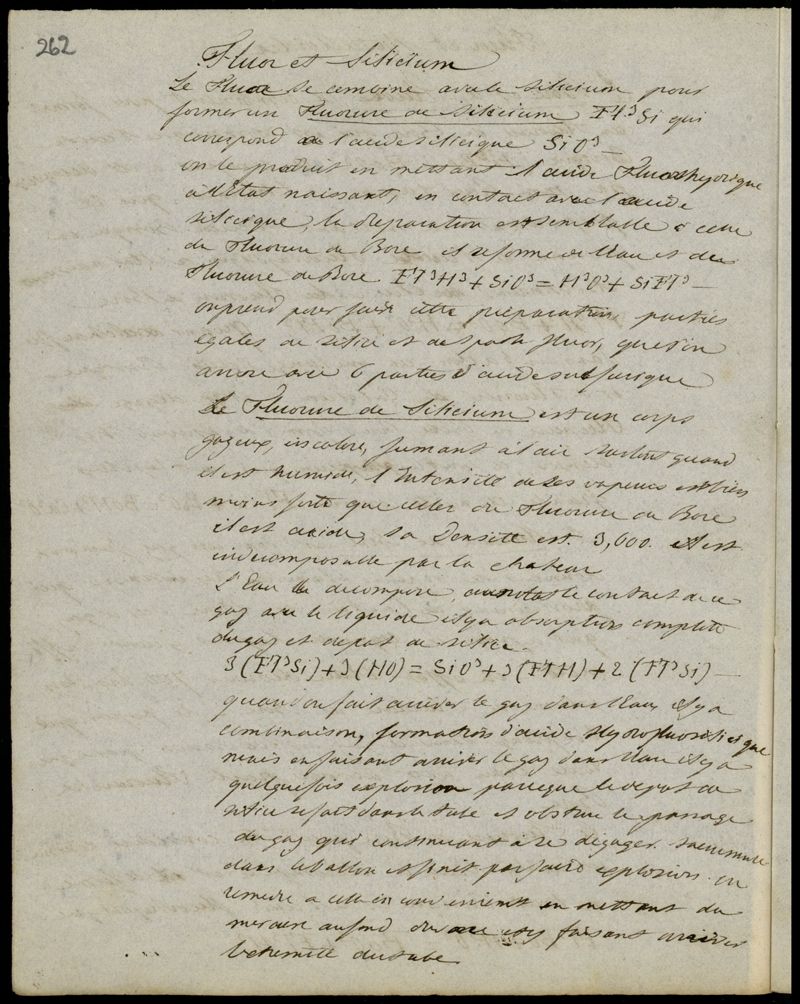 262
Fluor et Silicium
Le Fluor se combine avec le silicium pour
former un Fluorure de Silicium Fl³Si qui
correspond a l'acide silicique SiO³ —
on le produit en mettant l'acide Fluorhydrique
à l'état naissant, en contact avec l'acide
silicique, la preparation est semblable à celle
du Fluorure de Bore il se forme de l'eau et du
Fluorure de Bore. Fl³H³ + SiO³ = H³O³ + SiFl³ —
on prend pour faire cette préparation, parties
égales de silice et de spath fluor, que l'on
arrose avec 6 parties d'acide sulfurique
Le Fluorure de Silicium est un corps
gazeux, incolore, fumant à l'air surtout quand
il est humide, l'intensité de ses vapeurs est bien
moins forte que celles du Fluorure de Bore
il est acide, sa Densité est. 3,600. il est
indecomposable par la chaleur
L'Eau le decompose le contact de ce
gaz avec le liquide il y a absorption complète
du gaz et depot de silice.
3 (Fl³Si) + 3 (HO) = SiO³ + 3 (FlH) + 2 (Fl³Si) —
quand on fait arriver le gaz dans l'eau, il y a
combinaison, formation d'acide Hydrofluosilicique
mais en faisant arriver le gaz dans l'eau il y a
quelquefois explosion parceque le depot de
silice se fait dans le tube et obstrue le passage
du gaz qui continuant à se dégager s'accumule
dans le ballon et finit par faire explosion. on
remedie a cela en mettant du
mercure au fond du vase et y faisant arriver
l'extremité du tube